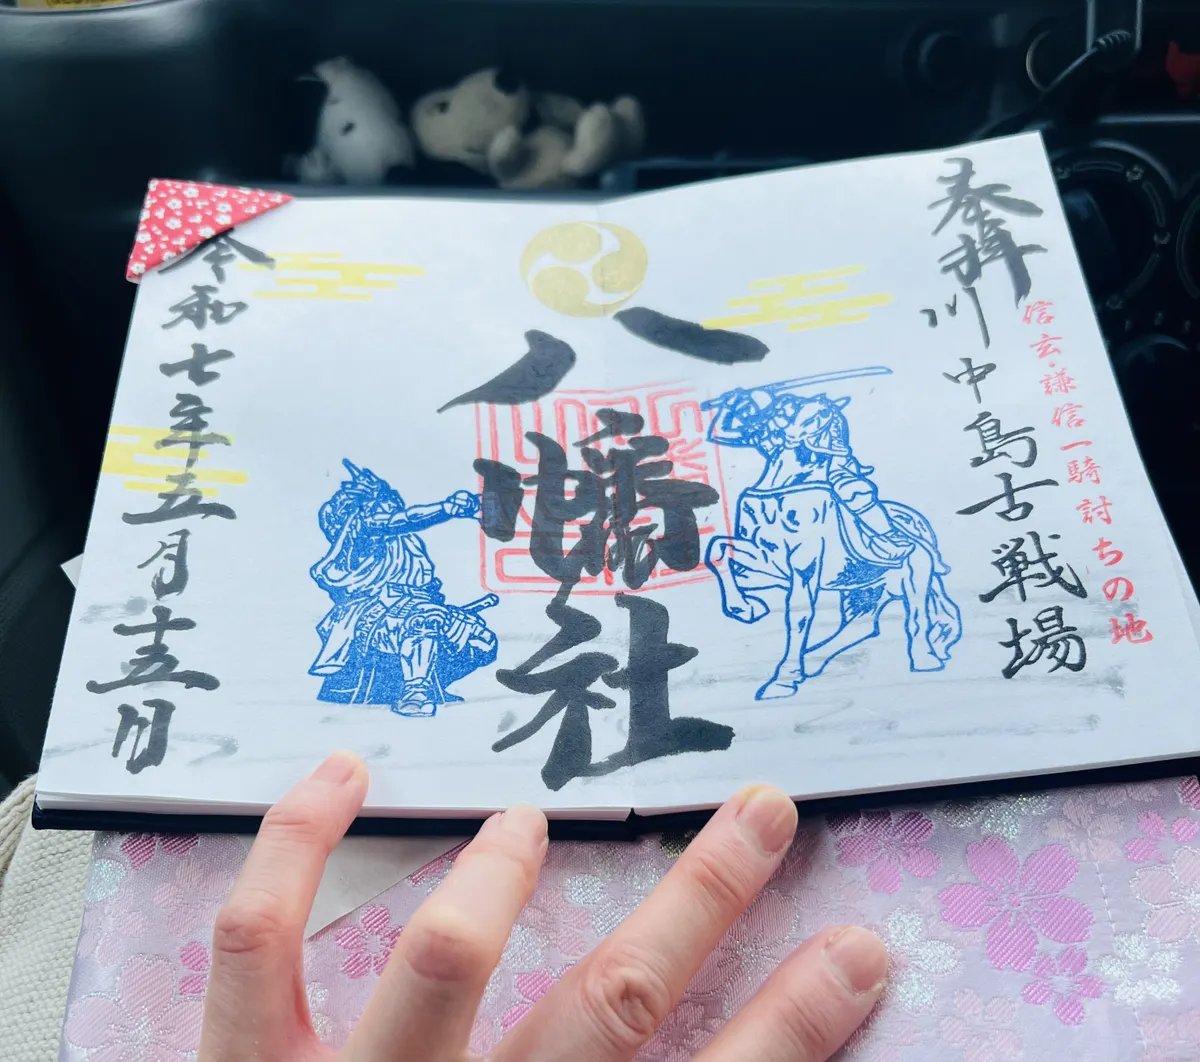 信玄・謙信一騎討ちの地
奉拝
川中島古戦場
八幡社
令和七年五月十五日